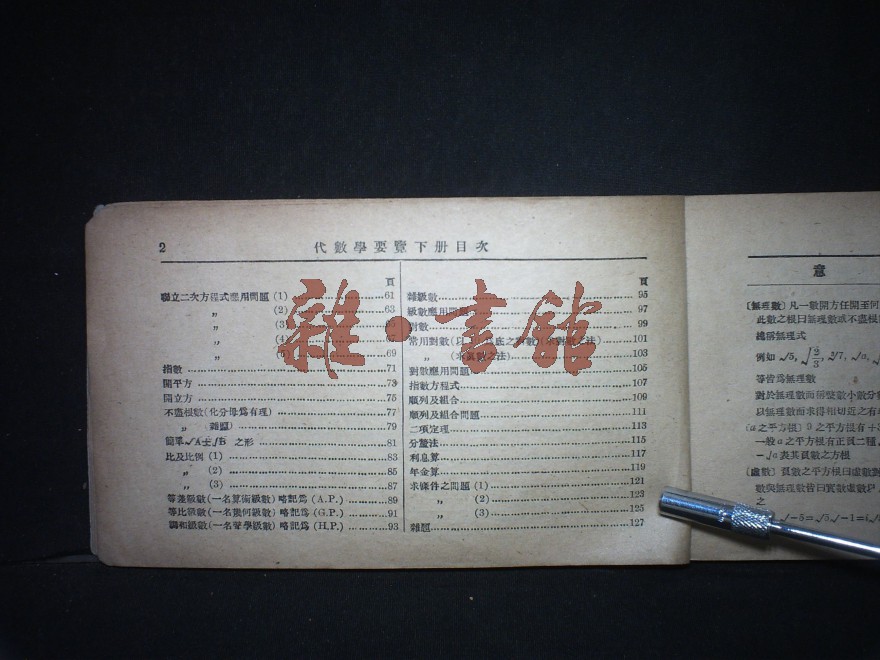 2
代數學要覽下册目次
頁
聯立二次方程式應用問題 (1) ........61
〃 (2) ........63
〃 (3)
〃 (4)
〃 ........69
指數........71
開平方........73
開立方........75
不盡根數(化分母爲有理)........77
〃 (雜題)........79
簡單√A±√B 之形........81
比及比例 (1)........83
〃 (2)........85
〃 (3)........87
等差級數(一名算術級數) 略記爲 (A.P.)........89
等比級數(一名幾何級數) 略記爲 (G.P.)........91
調和級數(一名聲學級數) 略記爲 (H.P.)........93
頁
雜級數........95
級數應用問題........97
對數........99
常用對數(以 底之對數) (求對數之法)........101
〃 (求眞數之法)........103
對數應用問題........105
指數方程式........107
順列及組合........109
順列及組合問題........111
二項定理........113
分釐法........115
利息算........117
年金算........119
求條件之問題 (1)........121
〃 (2)........123
〃 (3)........125
雜題........127
雜·書館
意
[無理數] 凡一數開方任開至何
此數之根曰無理數或不盡根
總稱無理式
例如 √5, √2/3,
等皆爲無理數
對於無理數而稱整數小數分
以無理數而求得相切近之有
之平方根] 9 之平方根有 +3
一般 a 之平方根有正負二種,
-√a 表其負數之方根
[虛數] 負數之平方根曰虛數
數與無理數皆曰實數虛數
之
√-5=√5 √-1=